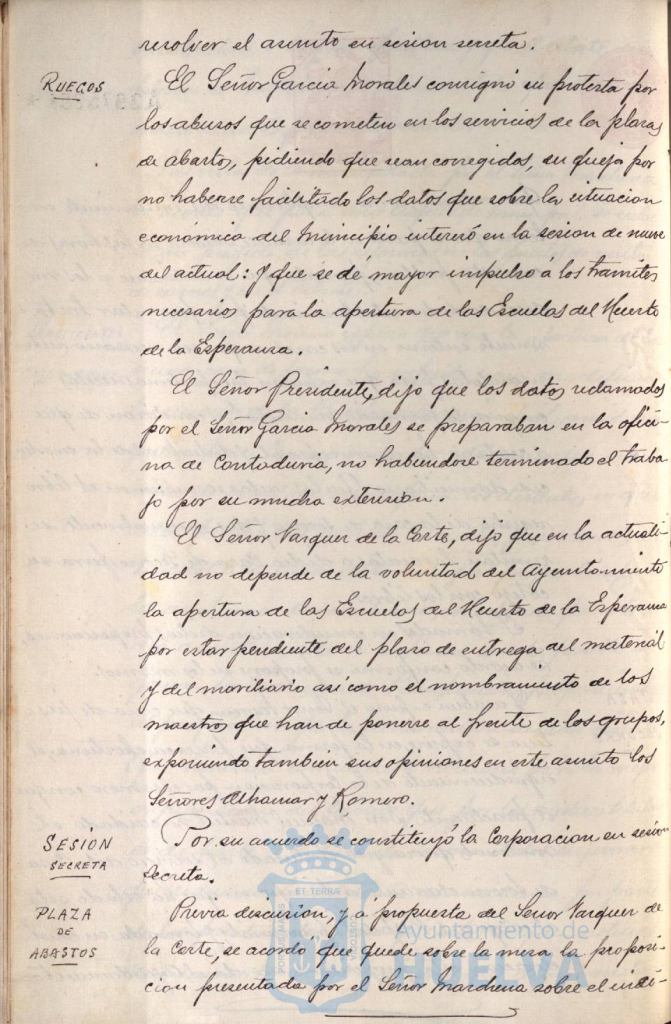 resolver el asunto en sesion secreta.
RUEGOS
El Señor Garcia Morales consignó su protesta por
los abusos que se cometen en los servicios de la plaza
de abastos, pidiendo que sean corregidos, su queja por
no haberse facilitado los datos que sobre la situacion
economica del Municipio intereró en la sesion de nueve
del actual: Y que se dé mayor impulso á los tramites
necesarios para la apertura de las Escuelas del Huerto
de la Esperanza.
El Señor Presidente, dijo que los datos reclamados
por el Señor Garcia Morales se preparaban en la ofici-
na de Contaduria, no habiendose terminado el traba
jo por su mucha extension.
El Señor Vazquez de la Corte, dijo que en la actuali-
dad no depende de la voluntad del Ayuntamiento
la apertura de las Escuelas del Huerto de la Esperanza
por estar pendiente del plazo de entrega del material
y del moviliario asi como el nombramiento de los
maestros que han de ponerse al frente de los grupos,
exponiendo tambien sus opiniones en este asunto los
Señores Alhamar y Romero.
SESIÓN
SECRETA
Por su acuerdo se constituyó la Corporacion en sesion
secreta.
PLAZA
DE
ABASTOS
Previa discusion, y á propuesta del Señor Vazquez de
la Corte, se acordo que quede sobre la mesa la proposi-
cion presentada por el Señor Marchena sobre el indi-
ET TERRA
Ayuntamiento de
HUELVA